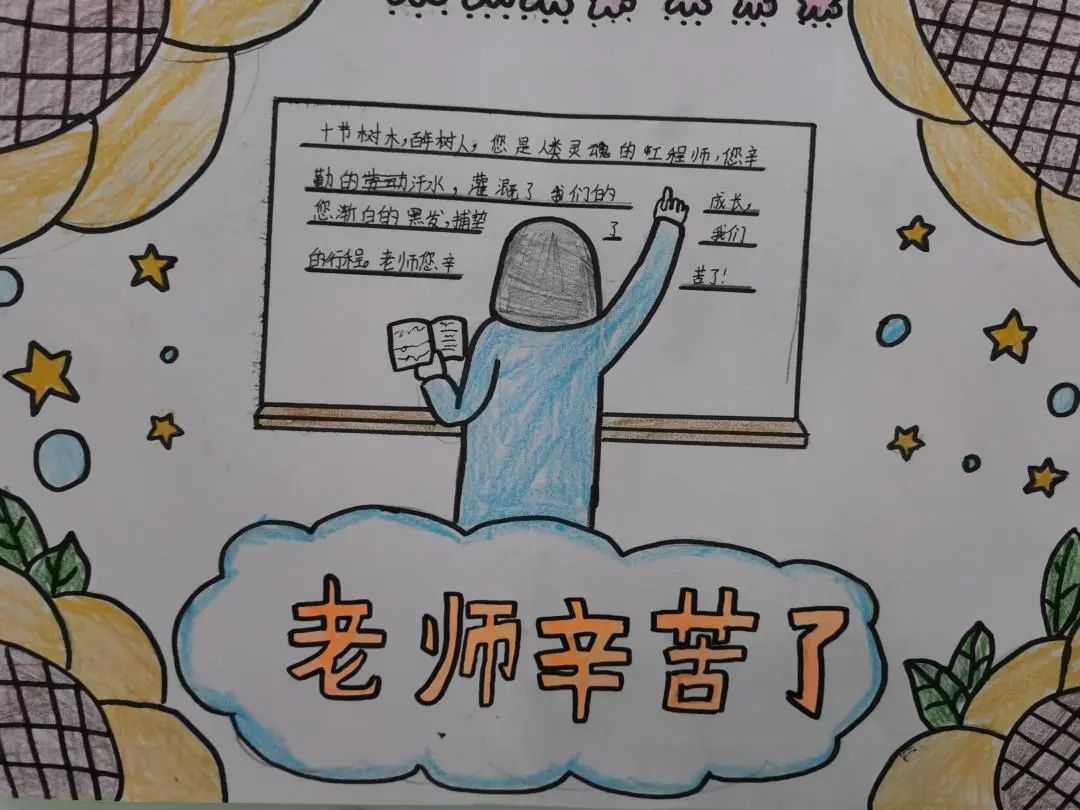 十节树木，百年树人，您是人类灵魂的工程师，您辛
勤的劳动汗水，灌溉了我们的 成长，
您渐白的黑发，捕垫 了 我们
的行程。老师您辛 苦了！
老师辛苦了